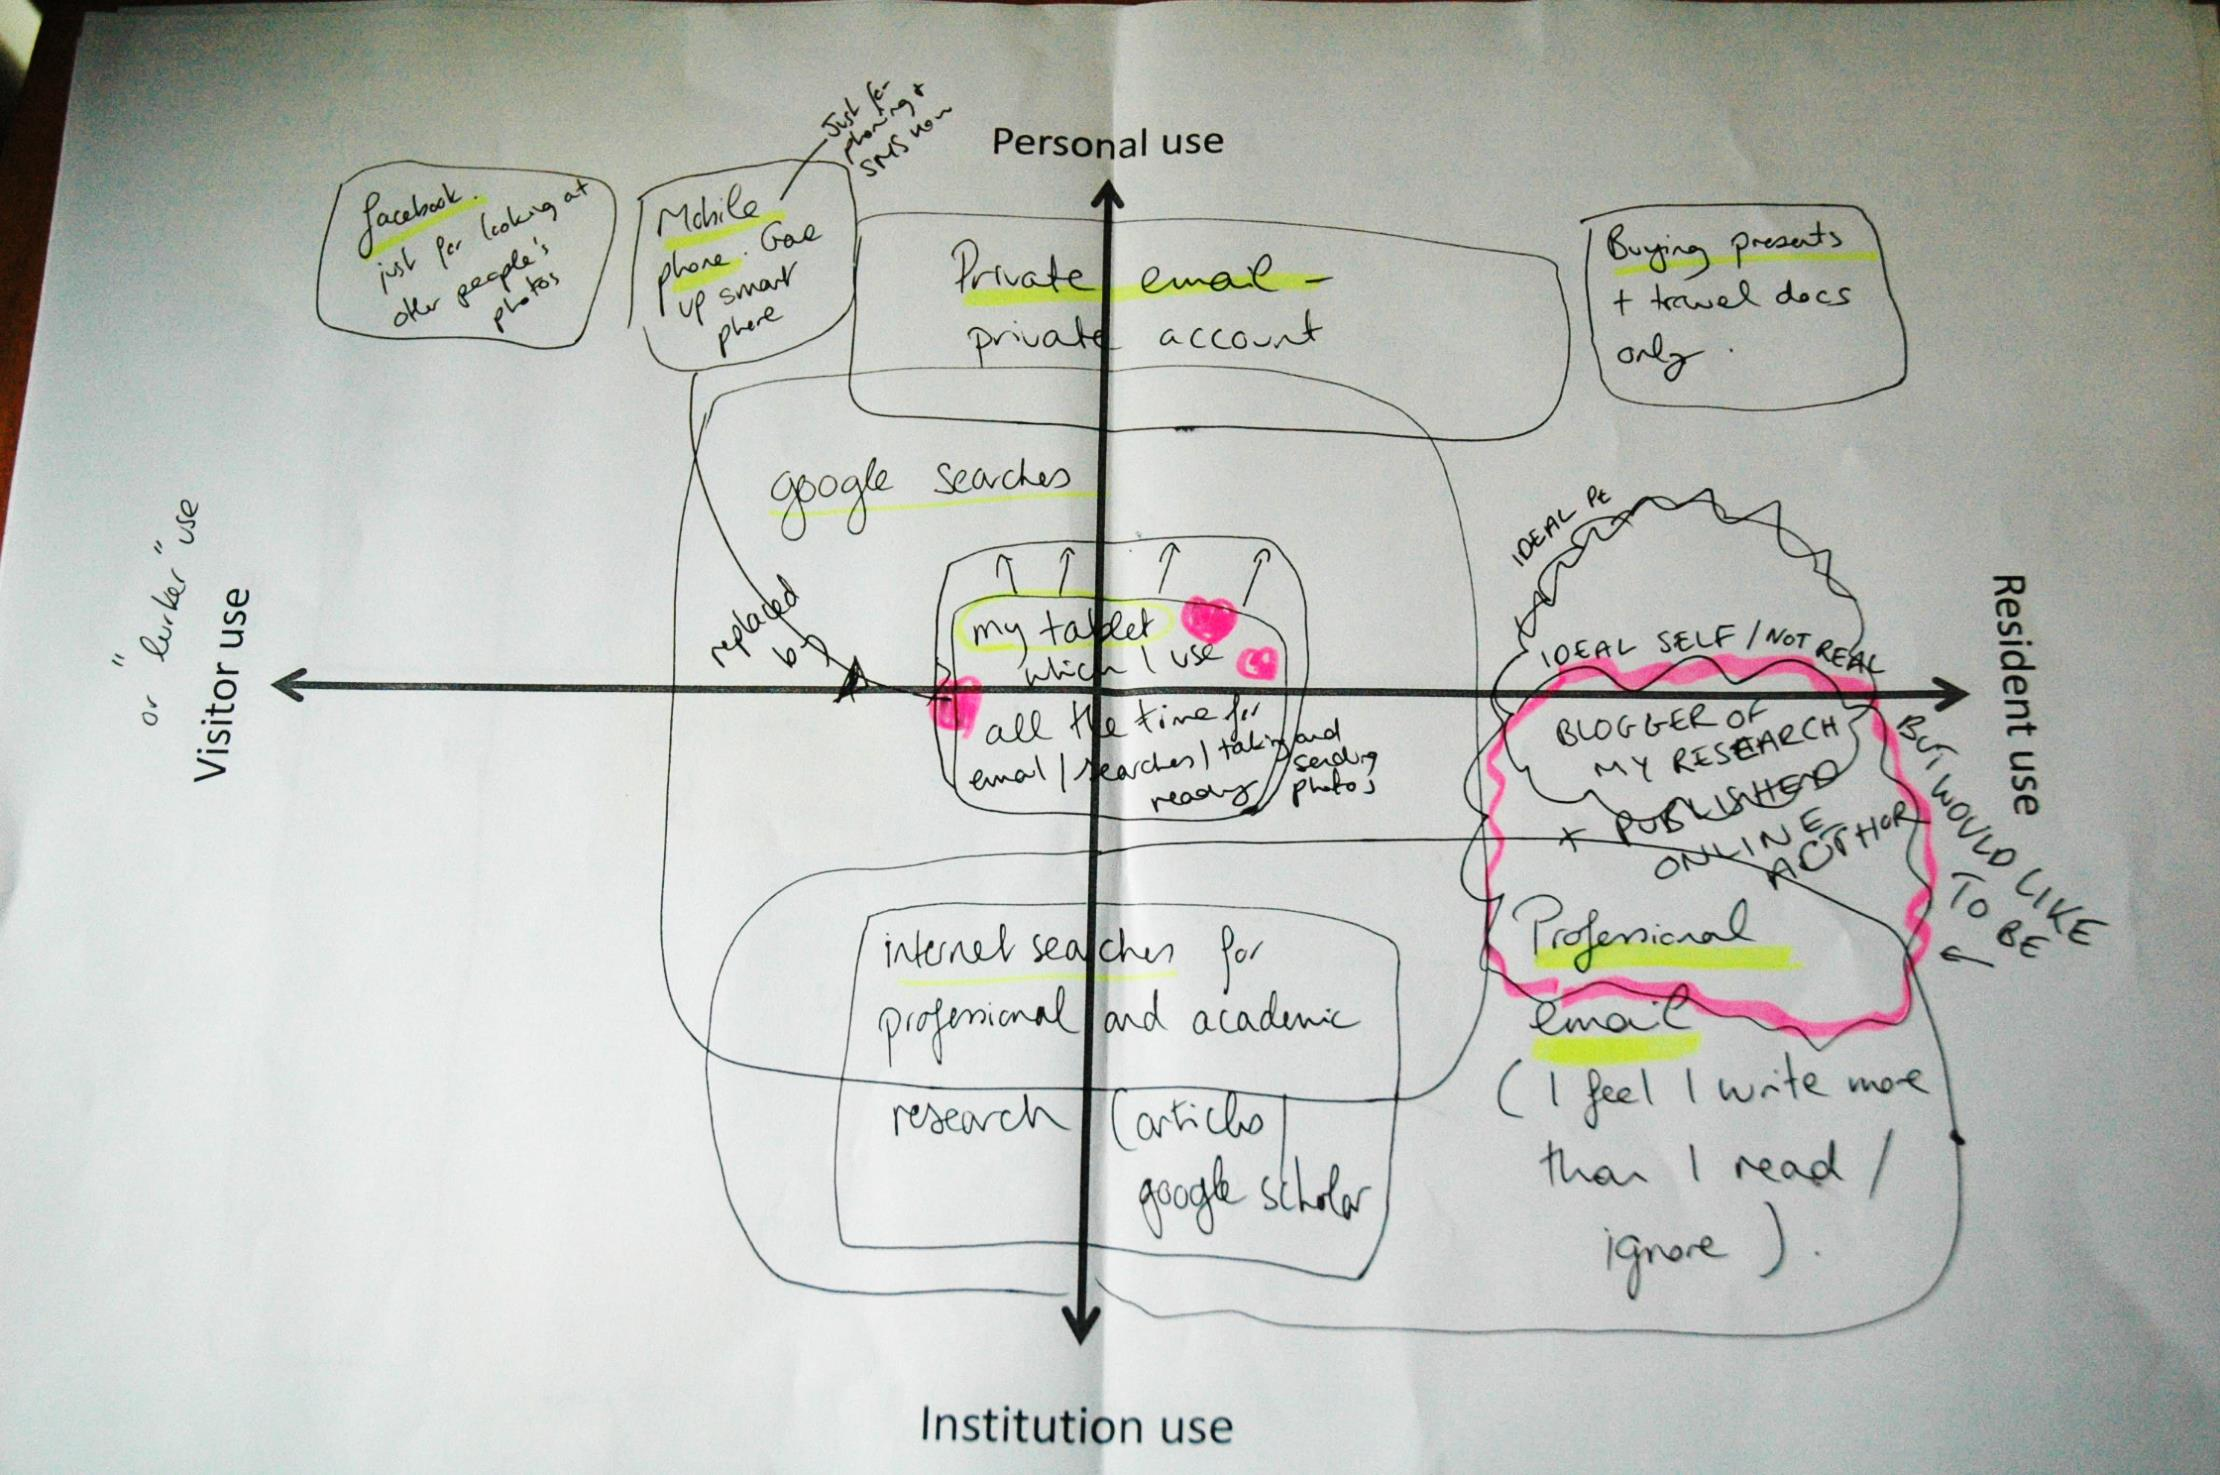 Just for
phoning +
SMS now
Personal use
facebook.
just for looking at
other people's
photos
Mobile
phone. Gave
up smart
phone
Private email -
private account
Buying presents
+ travel docs
only.
google searches
or "lurker" use
Visitor use
replaced
by
my tablet
which I use
all the time for
email / searches / taking and
sending
photos
reading
IDEAL
IDEAL SELF / NOT REAL
BLOGGER OF
MY RESEARCH
+ PUBLISHED
ONLINE
AUTHOR
BUT WOULD LIKE
TO BE
Resident use
internet searches for
professional and academic
research (articles
google scholar
Professional
email
(I feel I write more
than I read /
ignore).
Institution use